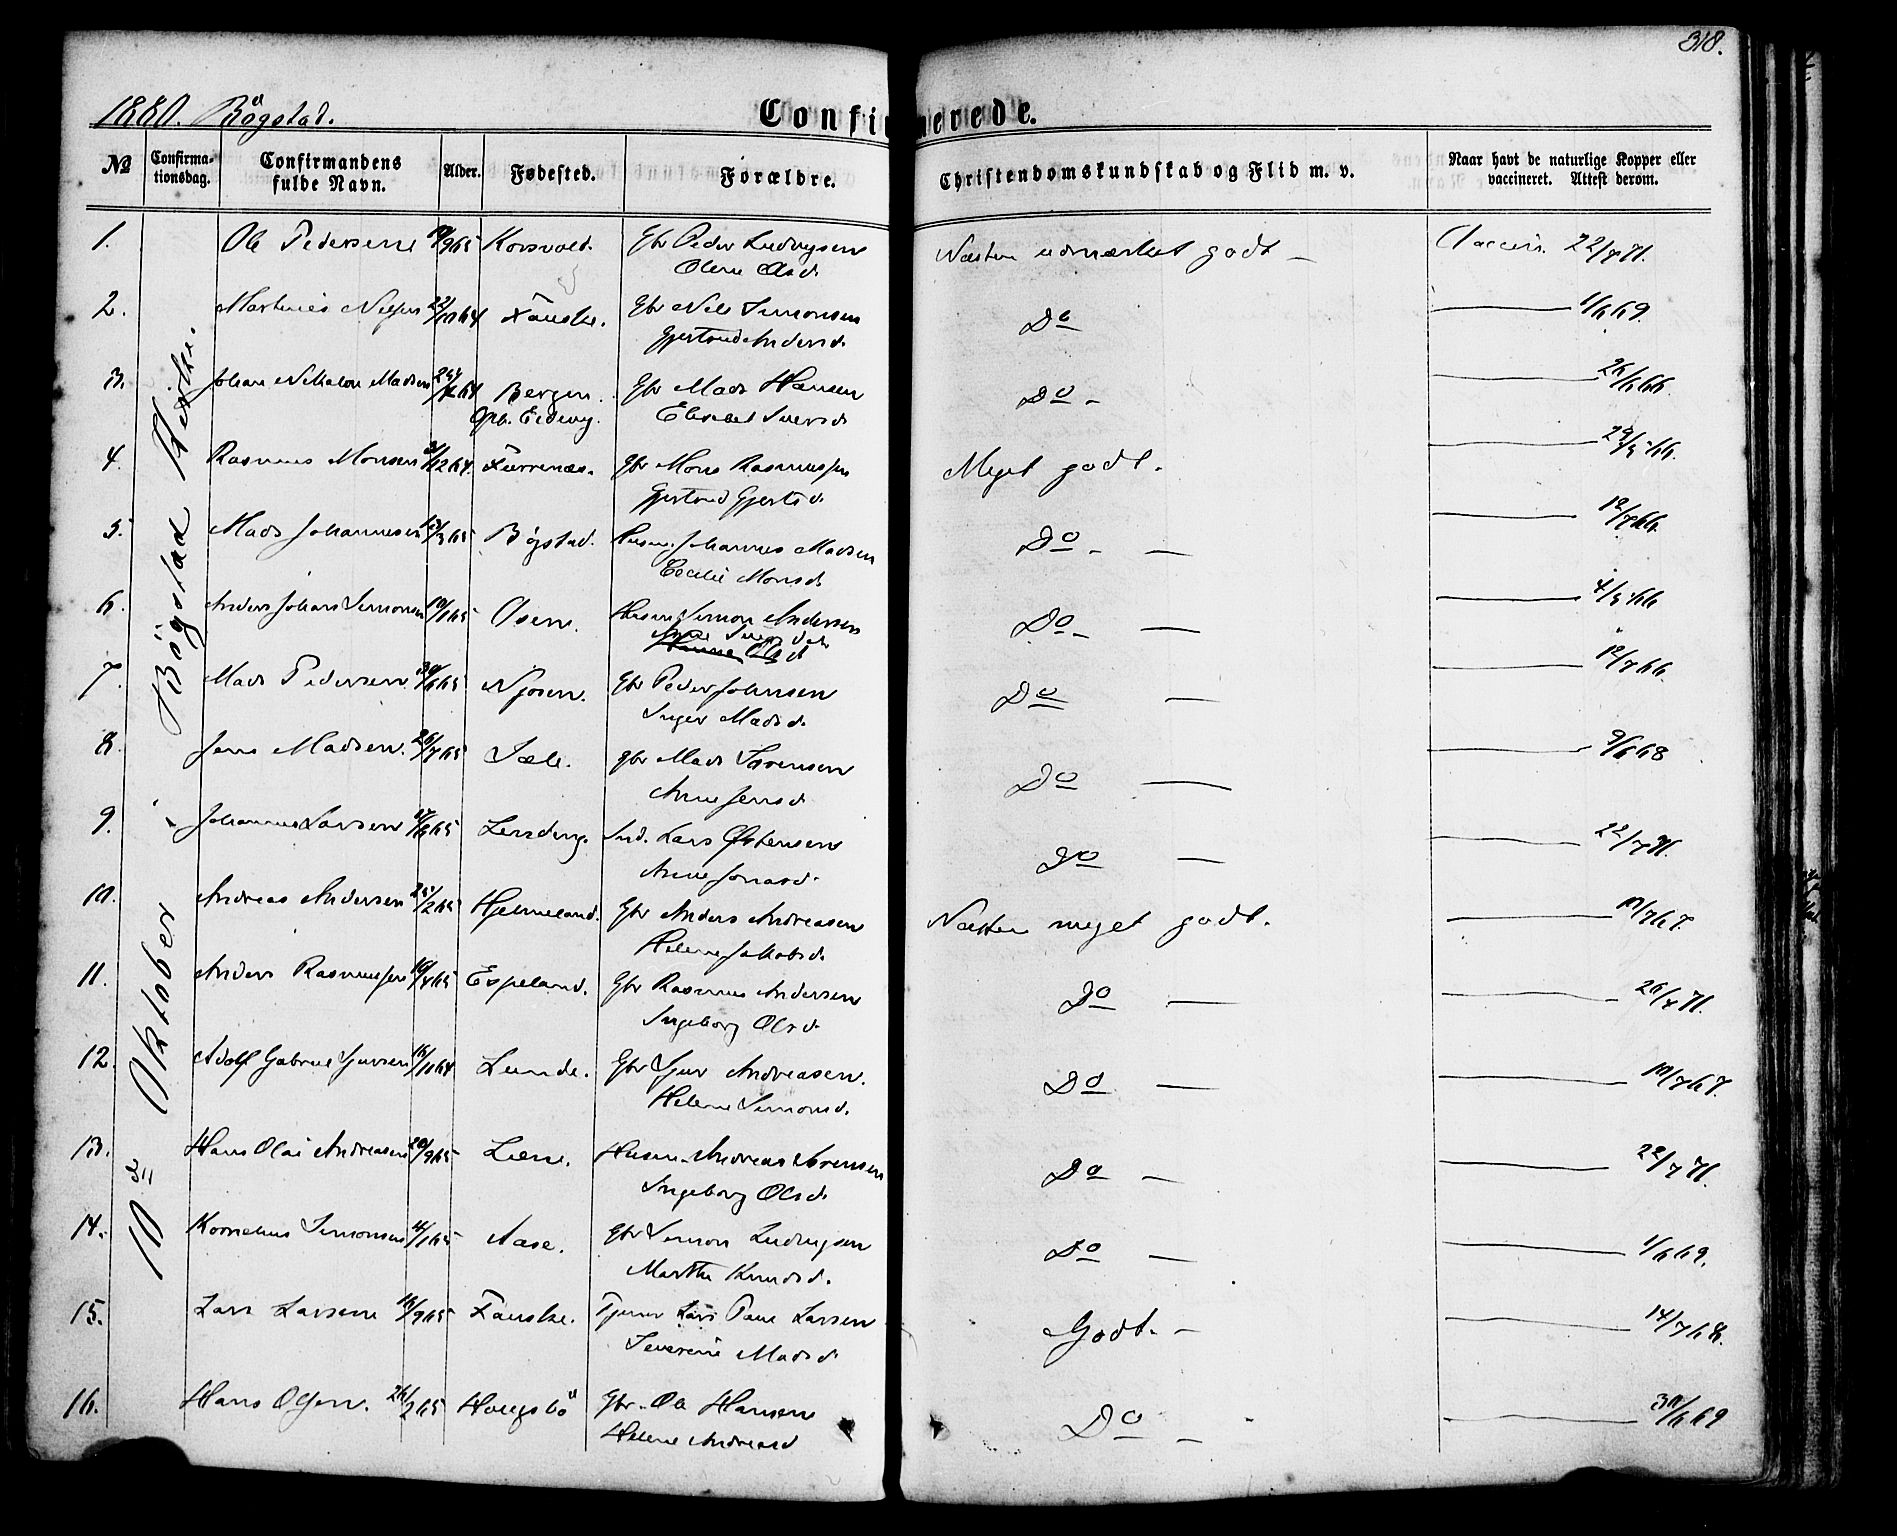 318.
1880. Bögstad.
Confirmerede.
No
Confirmationsdag.
Confirmandens fulde Navn.
Alder.
Fødested.
Forældre.
Christendomskundskab og Flid m. v.
Naar havt de naturlige Kopper eller vaccineret. Attest derom.
10de Oktober i Bögstad Kirke.
1. Ole Pedersen 9 65 Korsvold. Gbr Peder Ludvigsen Næsten udmærket godt Vaccin. 22/7 71.
Olene Olsd.
2. Martinus Nilsen 22/10 64 Fauske. Gbr Nils Simonsen Do 1/6 69.
Gjertrud Andersd.
3. Johan Nikolai Madsen 64 Bergen. Gbr Mads Hansen Do 26/6 66.
Opb. Eldevig. Elisabet Iversd.
4. Rasmus Monsen 12 64. Furrenæs. Gbr Mons Rasmussen Meget godt. 29/5 66.
Gjertrud Gjertsd.
5. Mads Johannesen 13/3 65 Bögstad. Husm. Johannes Madsen Do 12/7 66.
Cecilie Monsd.
6. Anders Johan Simonsen 10/1 65 Osen. Husm Simon Andersen Do 4/5 66
Olsd
7. Mads Pedersen 30/6 65 Njösen. Gbr Peder Johnsen Do 12/7 66.
Inger Madsd.
8. Jens Madsen. 26/7 65 Sæle. gbr Mads Sörensen Do 9/6 68
Anne Jensd
9. Johannes Larsen 65 Lending. Ind. Lars Östensen Do 22/7 71.
Anne Jonasd.
10. Andreas Andersen 25/2 65 Hjelmeland. Gbr Anders Andreasen Næsten meget godt. 10/7 67.
Helene Jakobsd.
11. Anders Rasmussen 65 Espeland. Gbr Rasmus Andersen Do 71.
Ingeborg Olsd
12. Adolf Gabriel Sjursen 16/10 64 Lunde. Gbr Sjur Andreasen. Do 10/7 67.
Helene Simonsd.
13. Hans Olai Andreasen 20/9 65 Lien. Husm. Andreas Sörensen Do 22/7 71.
Ingeborg Olsd.
14. Kornelius Simonsen 1 65 Aase. Gbr Simon Ludvigsen Do 1/6 69.
Marthe Knudsd.
15. Lars Larsen 16/9 65 Fauske. Tjener Lars Paul Larsen Godt. 14/7 68.
Severine Madsd
16. Hans Olsen. 26/2 65 Hougsbö Gbr. Ole Hansen Do 30/6 69
Helene Andreasd